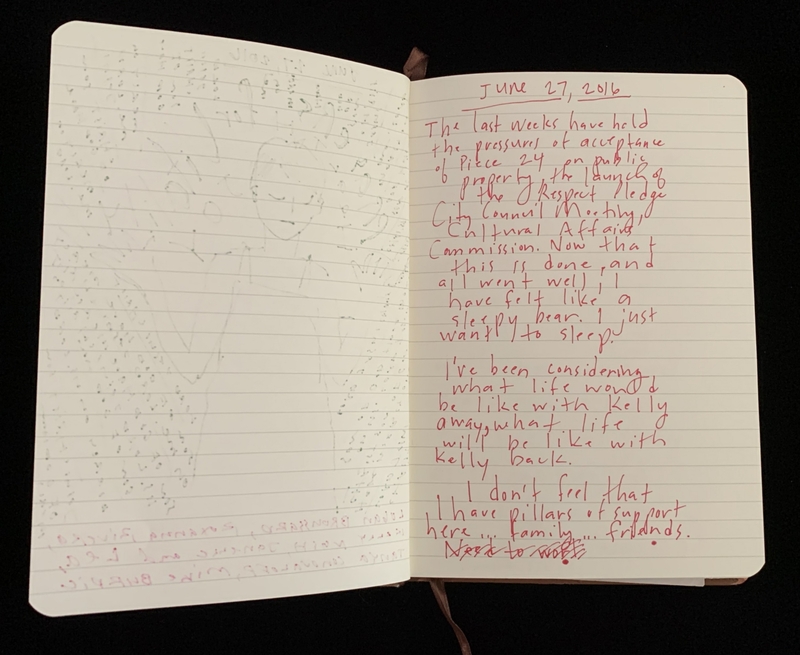 June 27, 2016
The last weeks have held
the pressures of acceptance
of Piece 24 on public
property, the launch of
the Respect Pledge
City Council Meeting,
Cultural Affairs
Commission. Now that
this is done, and
all went well, I
have felt like a
sleepy bear. I just
want to sleep.
I've been considering
what life would
be like with Kelly
away, what life
will be like with
Kelly back.
I don't feel that
I have pillars of support
here... family... friends.
Need to